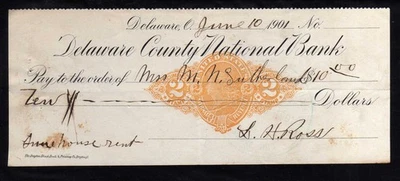 Delaware, O. June 10 1901 No.
Delaware County National Bank
Pay to the order of Mrs M. N. Sutherland $10.00
Ten Dollars
2 2
June house rent
S. H. Ross